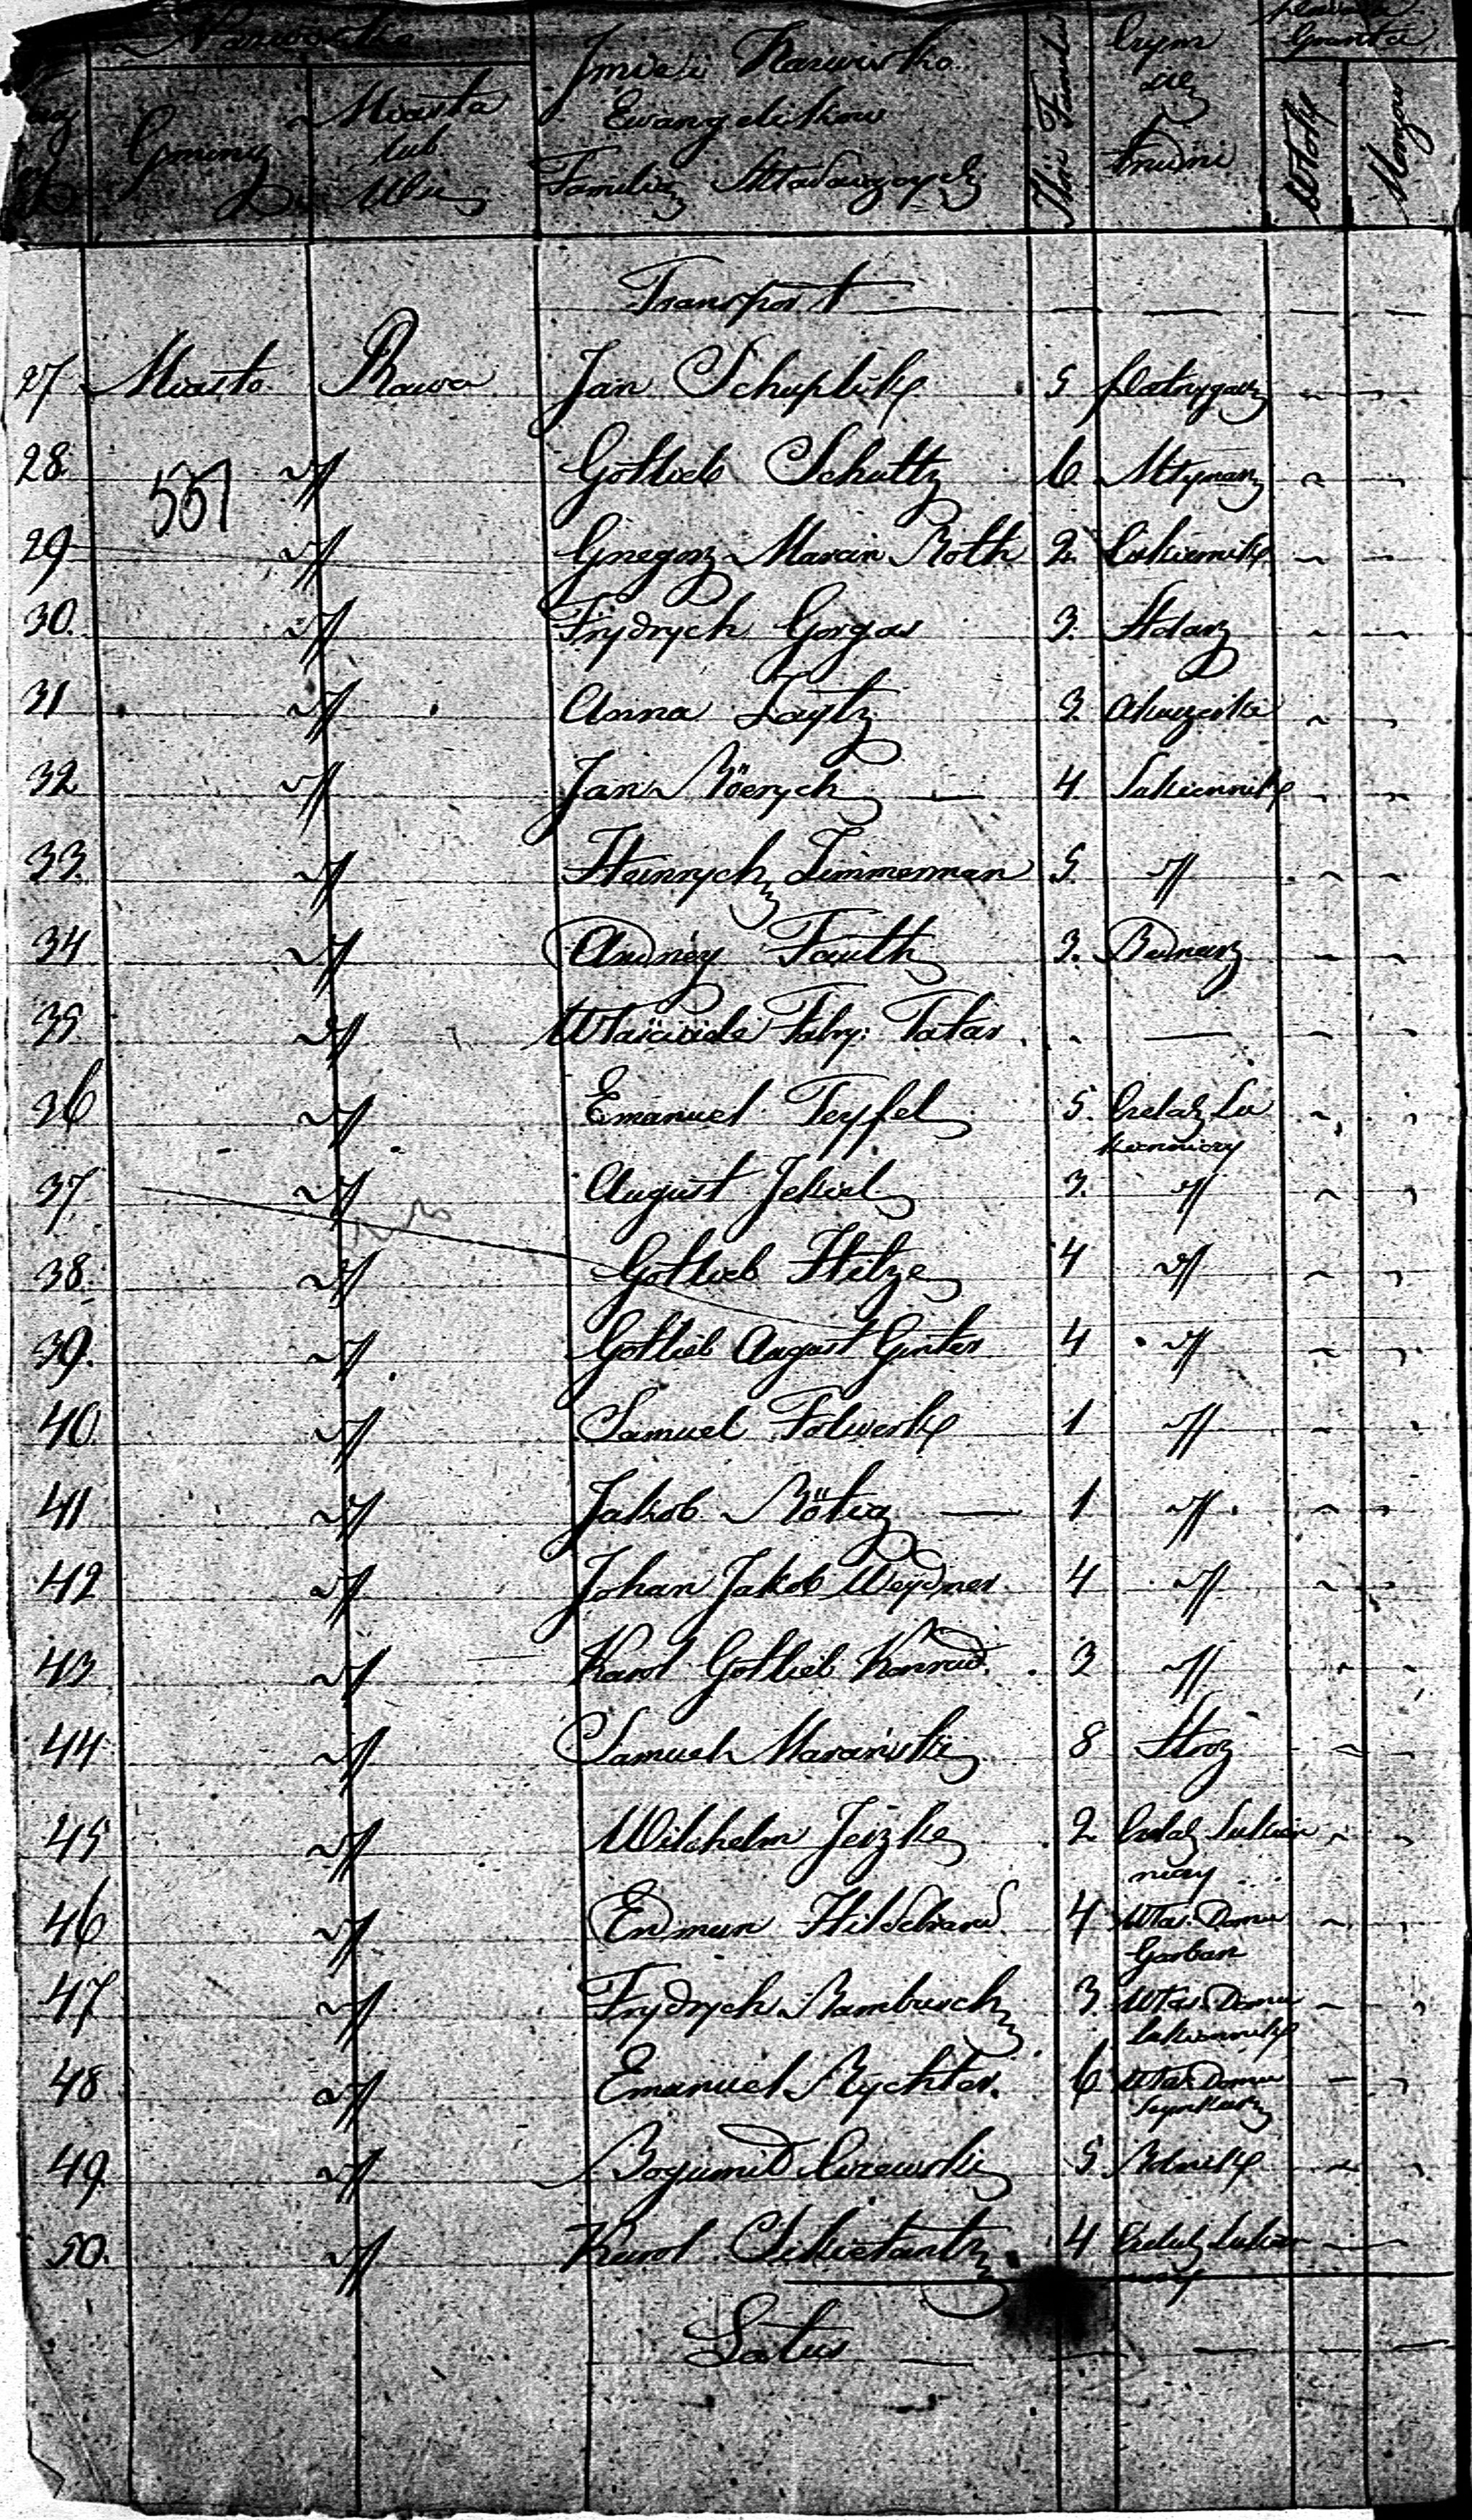 Nazwisko
Gminy
Miasta
lub
Wsi
Imie i Nazwisko
Ewangelikow
Familią Składaiących
Ilość Familii
Czym
się
trudni
posiada
Gruntu
Włoky
Morgow
Transport
27 Miasto Rawa Jan Schuplik 5
28 " Gotlieb Schultz 6 Młynarz
557
29 " Gregorz Marcin Roth 2 Cukiernik
30. " Frydrych Gorgas 3. Stolarz
31 " Anna Laytz 3. Akuszerka
32 " Jan Böerych 4. Sukiennik
33. " Heinrych Zimmerman 5. "
34 " Andréy Fauth 3. Bednarz
35 " Właściciele Fabry: Tatar
36 " Emanuel Teyfel 5. Czeladz Su
kienniczy
37 " August Jekiel 3. "
38. " Gotlieb Hilze 4 "
39. " Gotlieb August Ginter 4 "
40. " Samuel Folwerk 1 "
41 " Jakob Rötig 1 "
42 " Johan Jakob Weydner 4 "
43 " Karol Gotlieb Konrad. 3 "
44 " Samuel Marański 8 Stroz
45 " Wilchelm Jeizke 2 Czeladz Sukien
niczy
46 " Erdman Hildebrand 4 Włas. Domu
Garbarz
47 " Frydrych Rambusch 3 Włas. Domu
Sukiennik
48 " Emanuel Rychter. 6 Włas Domu
Szynkarz
49. " Bogumił 5 Rolnik
50. " Karol 4 Czeladz Sukien
niczy
Latus